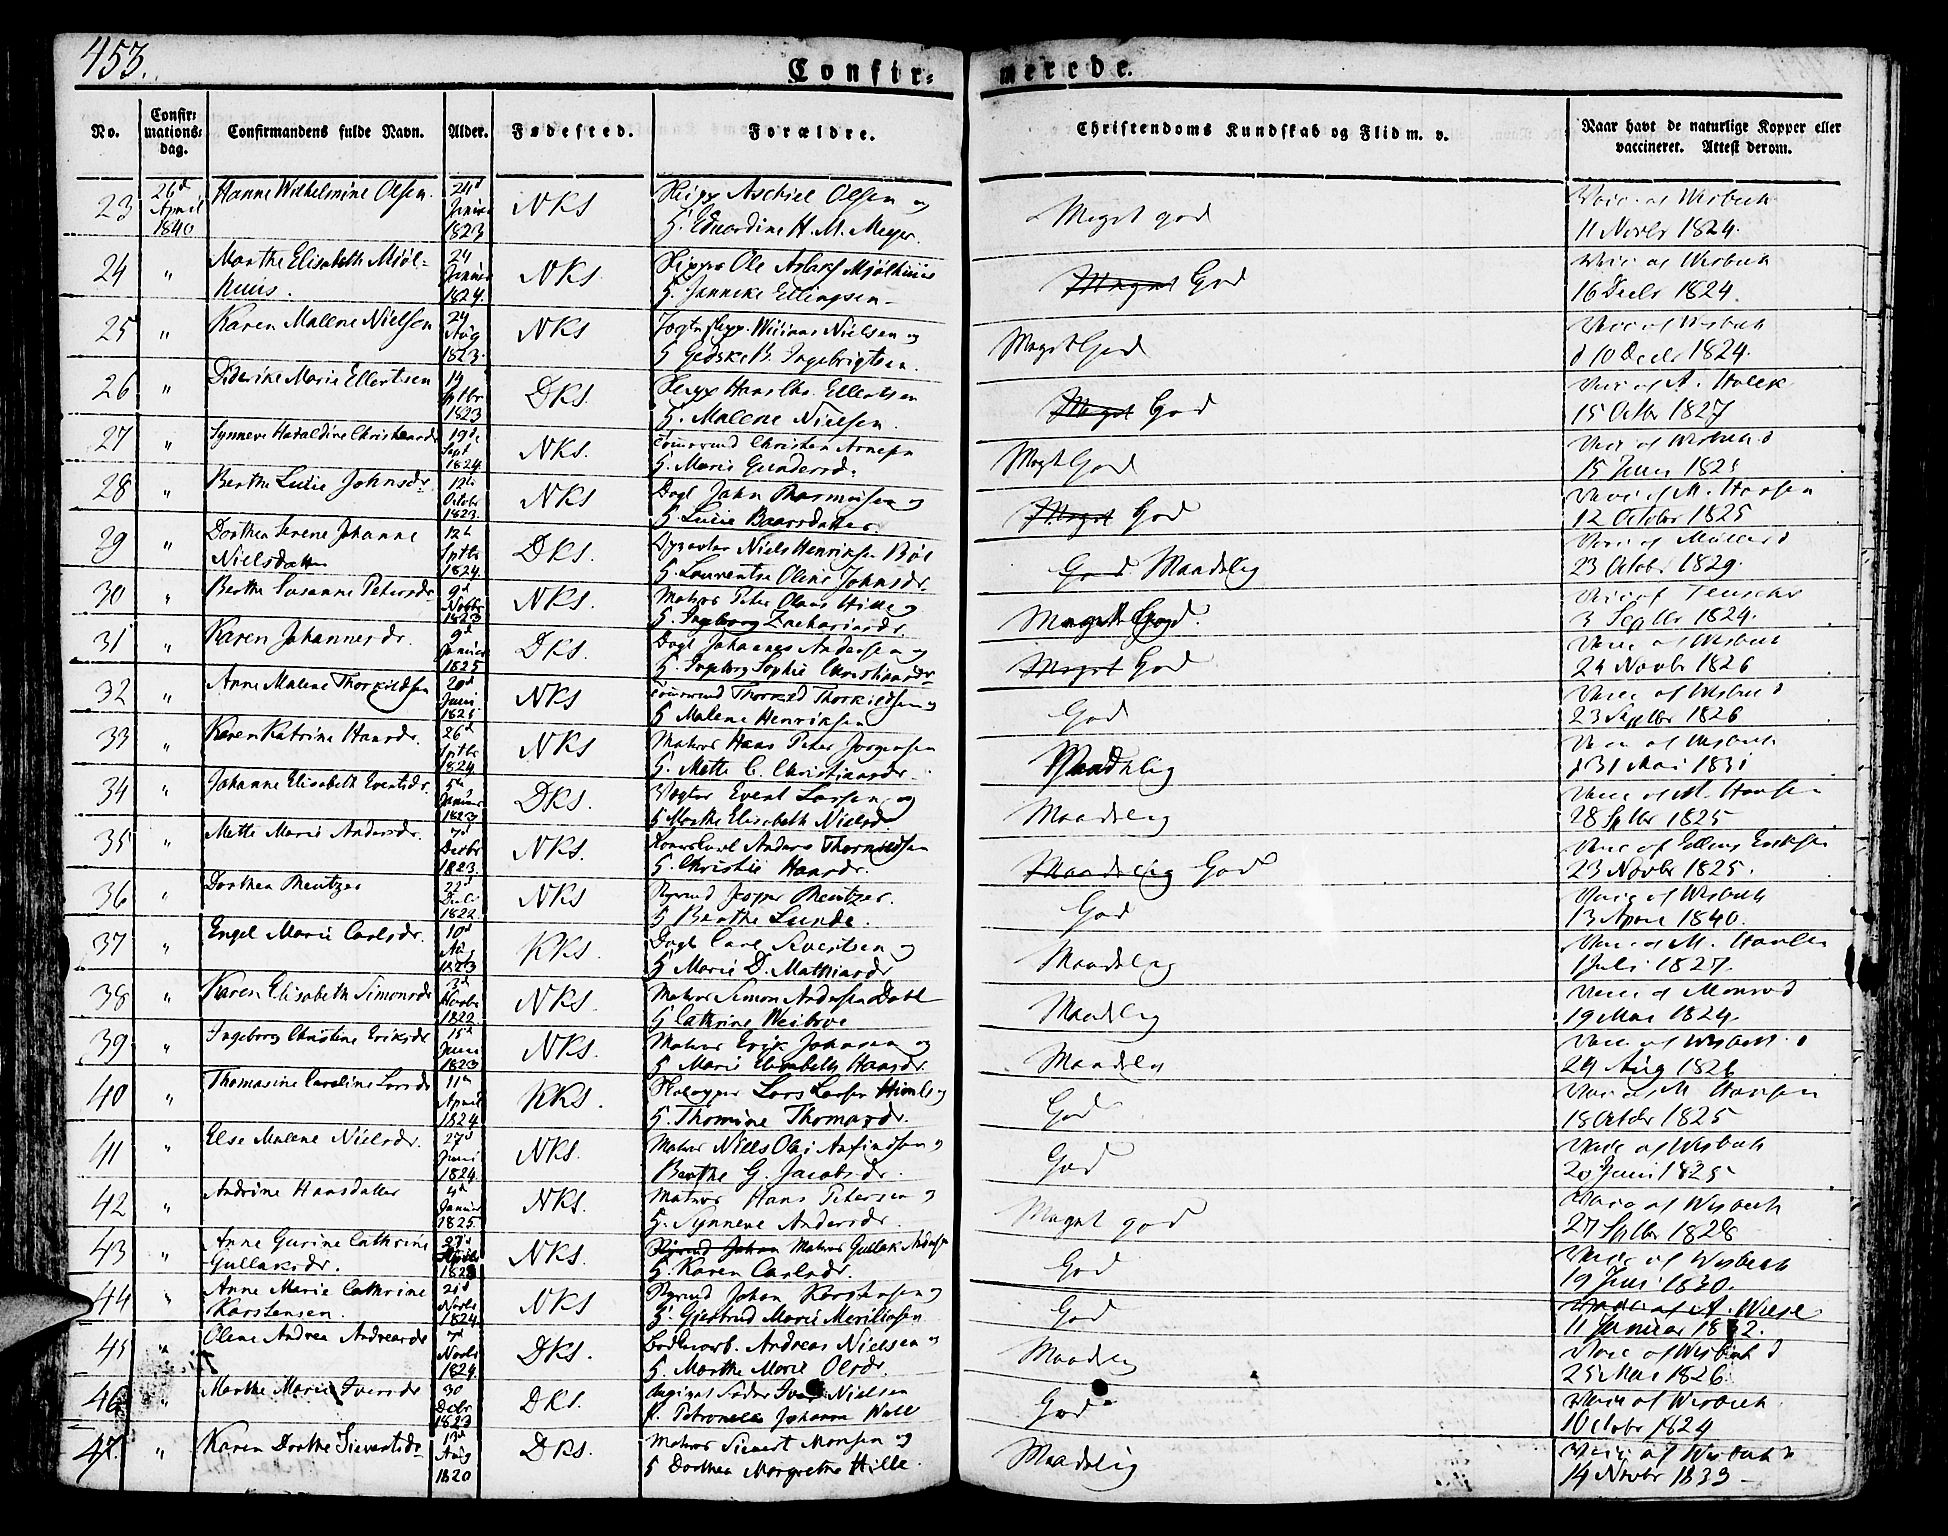 453.
Confir=
merede.
No.
Confir=
mations=
dag.
Confirmandens fulde Navn.
Alder.
Fødested.
Forældre.
Christendoms Kundskab og Flid m. v.
Naar havt de naturlige Kopper eller
vaccineret. Attest derom.
23 26d April 1840 Hanne Wilhelmine Olsen. 24d Januar 1823 NKS
Aschiel Olsen og
H. Eduardine H. M. Meyer.
Meget god
Vacc. af Wisbech
11 Novbr 1824.
24 " Marthe Elisabeth Mjøl=
huus. 24 Januar 1824. NKS
Skipper Ole Aslaks Mjølhuus
H. Janneke Ellingsen
Meget God
Vacc af Wisbech
16 Decbr 1824.
25 " Karen Malene Nielsen 24 Aug 1823. NKS
Nielsen og
H. Gedske B. Ingebrigtsen.
Meget God
Vacc af Wisbech
d 10 Decbr 1824.
26 " Diderike Marie Ellertsen 19 Sptbr 1823 DKS.
Hans Chr. Ellertsen
H. Malene Nielsen.
Meget God
Vacc af A. Holck
15 Octbr 1827
27 " Synneve Haraldine Christiansdr 19d Sept 1824 NKS.
Christian Arnesen
H. Marie Gundersd.
Meget God
Vacc af Wisbech
15 Juni
28 " Berthe Lucie Johnsdr 12te Octobr 1823. NKS
Dagl John Rasmussen og
H. Lucie Baarsdatter.
Meget God
Vacc af M. Hansen
12 October 1825
29 " Dorthea Serene Johanne
Nielsdatter 12te Sptbr 1824. DKS.
Niels Henriksen Bøe
H. Laurentse Oline Johnsdr.
God Maadelig
Vacc af Müller
23 Octobr 1829.
30 " Berthe Susanne Petersdr 9d Novbr 1823 NKS.
Matros Peter Olaus Hille og
H. Ingeborg Zachariasdr.
Meget God.
Vacc af
3 Septbr 1824.
31 " Karen Johannesdr. 9d Januar 1825 DKS.
Dagl Johannes Andersen og
H. Ingeborg Sophie Christiansdr
Meget God
Vacc af Wisbech
24 Novbr 1826
32 " Anne Malene Thorkildsen 20d Juni NKS
Thorkild Thorkildsen og
H Malene Henriksen
God
Vacc af Wisbech
23 Septbr 1826
33 " Karen Katrine Hansdr. 26d Sptbr 1824 NKS
Matros Hans Peter Jørgensen
H. Mette C. Christiansdr.
Maadelig
Vacc af Wisbech
d 31 Mai 1831
34 " Johanne Elisabeth Evertsdr. 5te Januar 1823 DKS.
Vægter Evert Larsen og
H Marthe Elisabeth Nielsdr
Maadelig
Vacc af M. Hansen
28 Sptbr 1825
35 " Mette Marie Andersdr. 7d Decbr 1823. NKS.
Anders Thormodsen
H. Christie Hansdr.
Maadelig God
Vacc af Elling Eriksen
23 Novbr 1825.
36 " Dorthea Mentzer 22d Juli 1822 NKS
Jesper Mentzer.
H Berthe Lunde.
God
Vacc af Wisbech
13 April 1840.
37 " Engel Marie Carlsdr. 10d 1823 KKS.
Dagl Carl Sivertsen og
H Marie D. Mathiasdr
Maadelig
Vacc af M. Hansen
1 Juli 1827.
38 " Karen Elisabeth Simonsdr 3d Novbr 1822 NKS.
Matros Simon Andersen Dahl
H Cathrine
Maadelig
Vacc af Monrad
19 Mai 1824
39 " Ingeborg Christine Eriksdr 15d Juni 1823 NKS.
Matros Erik Johnsen og
H Marie Elisabeth Hansdr.
Maadelig
Vacc af Wisbech
29 Aug 1826
40 " Thomasine Caroline Larsdr 11te April 1824 KKS.
Lars Larsen og
H. Thomine Thomasdr.
God
Vacc af M Hansen
15 Octobr 1825
41 " Else Malene Nielsdr. 27d Juni 1824 NKS.
Matros Niels Olai Anfindsen og
Berthe G. Jacobsdr.
God
Vacc af Wisbech
20 Juni 1825
42 " Andrine Hansdatter 4d Januar 1825. NKS.
Matros Hans Petersen og
H. Synneve Andersdr.
Meget god
Vacc af Wisbech
27 Sptbr 1828
43 " Anne Gurine Cathrine
Gullaksdr. 27d 1823 NKS.
Johan Matros Gullak Andersen
H. Karen Carlsdr.
God
Vacc af Wisbech
19 Juni 1830.
44 " Anne Marie Cathrine
Karstensen. 21d Novbr 1824 NKS
Johan Karstensen og
H. Gjertrud Marie
God
Vacc af A. Wiese
11 Januar 1832.
45 " Oline Andrea Andreasdr 7d Novbr 1824. DKS.
Andreas Nielsen og
H. Marthe Marie Olsdr.
Maadelig
Vacc af Wisbech d
25 Mai 1826
46 " Marthe Marie Iversdr 30 Decbr 1823 DKS.
angivet Fader Iver Nielsen
Petronelle Johanne
God
Vacc af Wisbech
1 October 1824
47. " Karen Dorthe Sievertsdr 13d Aug 1820 DKS.
Matros Sievert Monsen og
H Dorthea Margrethe Hille.
Maadelig
Vacc af Wisbech d
14 Novbr 1839